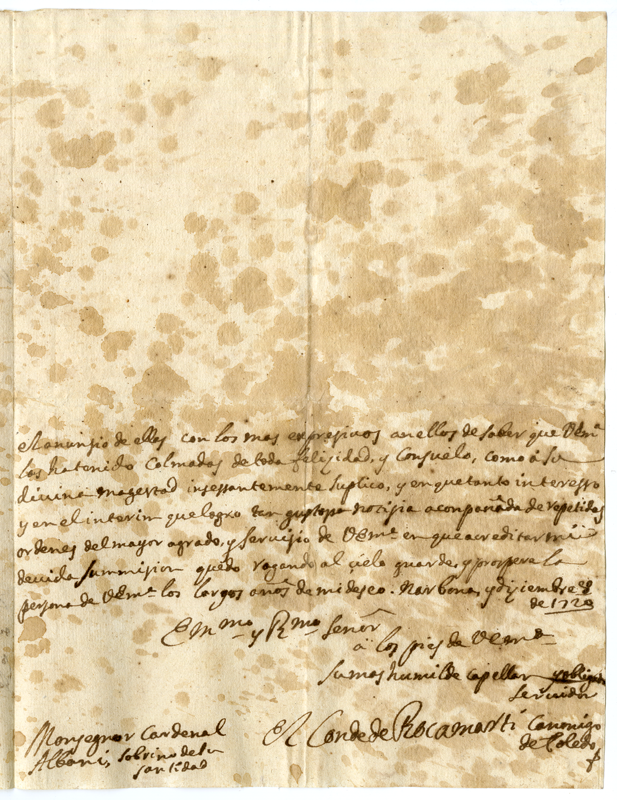 el anunsio de ellas con los mas expresivos anellos de saber que VEmª
las ha tenido Colmadas de toda felizidad, y Consuelo, como â su
divina magestad insessantemente suplico, y en que tanto interesso
y en el interim que logro tan gustossa notisia acompañada de repetidas
ordenes del mayor agrado, y servisio de VEmª en que acreditar mi
devida summision quedo rogando al cielo guarde, y prospere la
persona de VEmª los largos años de mi deseo. Narbona, y diziembre
de 1720
Emmo y Rmo Señor
â los pies de VEmª
su mas humilde capellan y obligado
servidor
El Conde de Rocamarti Canonigo
de Toledo
Monsegnor Cardenal
Albani, sobrino de su
santidad